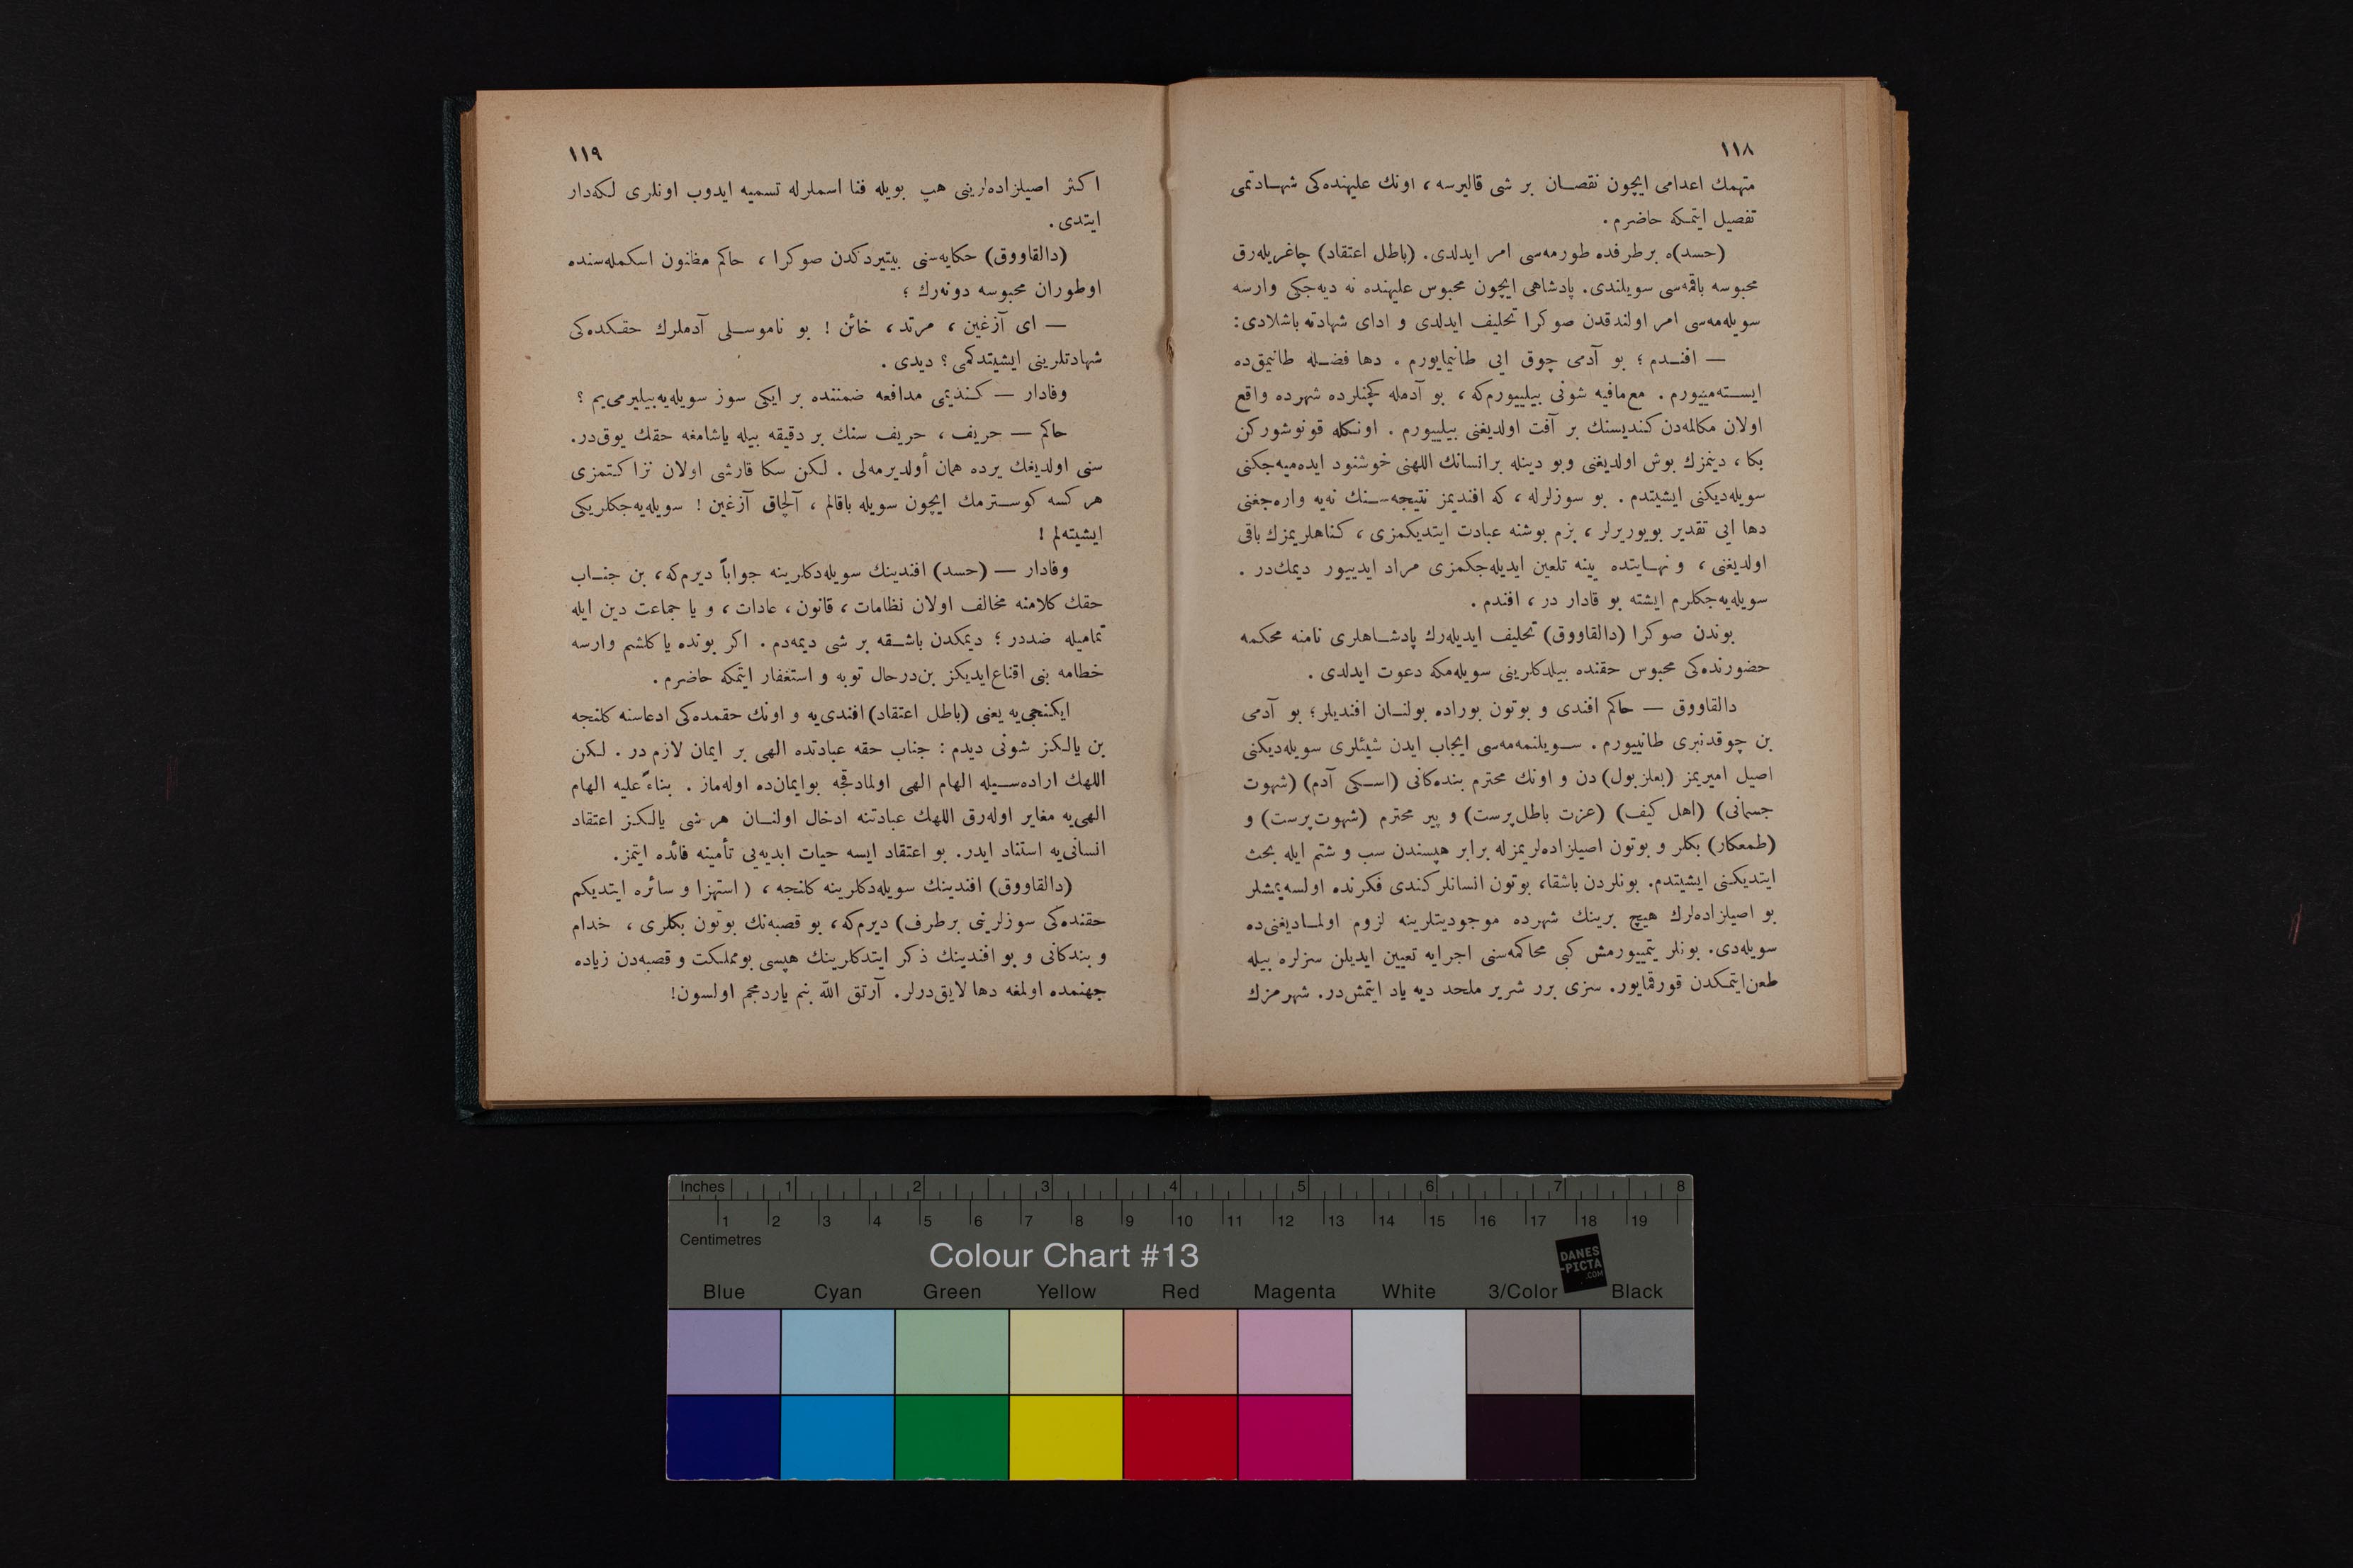 ١١٨
متهمك اعدامی ایچون نقصـان بر شی قالیرسه ، اونك علیهنده‌کی شهـادتمی
تفصیل ایتمکه حاضرم .
(حسد)ه برطرفده طورمه‌سی امر ایدلدی. (باطل اعتقاد) چاغریله‌رق
محبوسه باقمه‌سی سویلندی. پادشاهی ایچون محبوس علیهنده نه دیه‌جکی وارسه
سویله‌مه‌سی امر اولندقدن صوکرا تحلیف ایدلدی و ادای شهادته باشلادی:
— افنـدم ؛ بو آدمی چوق ایی طانیمایورم . دها فضـله طانیمق‌ده
ایسـته‌مییورم . مع‌مافیه شونی بیلییورم‌که ، بو آدمله کچنلرده شهرده واقع
اولان مکالمه‌دن کندیسنك بر آفت اولدیغنی بیلییورم . اونکله قونوشورکن
بکا ، دینمزك بوش اولدیغنی وبو دینله برانسانك اللهنی خوشنود ایده‌میه‌جکنی
سویله‌دیکنی ایشیتدم . بو سوزلرله ، که افندیمز نتیجه‌سـنك نه‌یه واره‌جغنی
دها ایی تقدیر بویوریرلر ، بزم بوشنه عبادت ایتدیکمزی ، کناهلریمزك باقی
اولدیغنی ، و نهـایتده یینه تلعین ایدیله‌جکمزی مراد ایدییور دیمك‌در .
سویله‌یه‌جکلرم ایشته بو قادار در ، افندم .
بوندن صوکرا (دالقاووق) تحلیف ایدیله‌رك پادشـاهلری نامنه محکمه
حضورنده‌کی محبوس حقنده بیلدکلرینی سویله‌مکه دعوت ایدلدی .
دالقاووق — حاکم افندی و بوتون بوراده بولنـان افندیلر؛ بو آدمی
بن چوقدنبری طانییورم . سـویلنمه‌مه‌سی ایجاب ایدن شیئلری سویله‌دیکنی
اصیل امیریمز (بعلزبول) دن و اونك محترم بنده‌کانی (اسـکی آدم) (شهوت
جسمانی) (اهل کیف) (عزت باطل‌پرست) و پیر محترم (شهوت‌پرست) و
(طمعکار) بکلر و بوتون اصیلزاده‌لریمزله برابر هپسندن سب و شتم ایله بحث
ایتدیکنی ایشیتدم. بونلردن باشقا، بوتون انسانلر کندی فکرنده اولسه‌یمشلر
بو اصیلزاده‌لرك هیچ برینك شهرده موجودیتلرینه لزوم اولمـادیغنی‌ده
سویله‌دی. بونلر یتمییورمش کبی محاکمه‌سنی اجرایه تعیین ایدیلن سزلره بیله
طعن‌ایتمکدن قورقمایور. سزی برر شریر ملحد دیه یاد ایتمش‌در. شهرمزك
١١٩
اکثر اصیلزاده‌لرینی هپ بویله فنا اسملرله تسمیه ایدوب اونلری لکه‌دار
ایتدی .
(دالقاووق) حکایه‌سنی بیتیردکدن صوکرا ، حاکم مظنون اسکمله‌سنده
اوطوران محبوسه دونه‌رك ؛
— ای آزغین ، مرتد ، خائن ! بو ناموسـلی آدملرك حقکده‌کی
شهادتلرینی ایشیتدکمی ؟ دیدی .
وفادار — کـندیمی مدافعه ضمننده بر ایکی سوز سویله‌یه‌بیلیرمی‌یم ؟
حاکم — حریف ، حریف سنك بر دقیقه بیله یاشامغه حقك یوق‌در.
سنی اولدیغك یرده همان أولدیرمه‌لی . لکن سکا قارشی اولان نزاکتمزی
هر کسه کوسـترمك ایچون سویله باقالم ، آلچاق آزغین ! سویله‌یه‌جکلریکی
ایشیته‌لم !
وفادار — (حسد) افندینك سویله‌دکلرینه جواباً دیرم‌که ، بن جنـاب
حقك کلامنه مخالف اولان نظامات ، قانون ، عادات ، و یا جماعت دین ایله
تمامیله ضددر ؛ دیمکدن باشـقه بر شی دیمه‌دم . اکر بونده یاکلشم وارسه
خطامه بنی اقناع‌ایدیکز بن‌درحال توبه و استغفار ایتمکه حاضرم .
ایکنجی‌یه یعنی (باطل اعتقاد) افندی‌یه و اونك حقمده‌کی ادعاسنه کلنجه
بن یالکز شونی دیدم : جناب حقه عبادتده الهی بر ایمان لازم در . لکن
اللهك اراده‌سـیله الهام الهی اولمادقجه بوایمان‌ده اوله‌ماز . بناءً علیه الهام
الهی‌یه مغایر اوله‌رق اللهك عبادتنه ادخال اولنـان هر شی یالکـز اعتقاد
انسانی‌یه استناد ایدر. بو اعتقاد ایسه حیات ابدیه‌یی تأمینه فائده ایتمز.
(دالقاووق) افندینك سویله‌دکلرینه کلنجه ، (استهزا و سائره ایتدیکم
حقنده‌کی سوزلرینی برطرف) دیرم‌که ، بو قصبه‌نك بوتون بکلری ، خدام
و بندکانی و بو افندینك ذکر ایتدکلرینك هپسی بومملکت و قصبه‌دن زیاده
جهنمده اولمغه دها لایق‌درلر. آرتق اللّه بنم یاردمجم اولسون!
Inches 1 2 3 4 5 6 7 8
1 2 3 4 5 6 7 8 9 10 11 12 13 14 15 16 17 18 19
Centimetres
Colour Chart #13
DANES
-PICTA
.COM
Blue Cyan Green Yellow Red Magenta White 3/Color Black